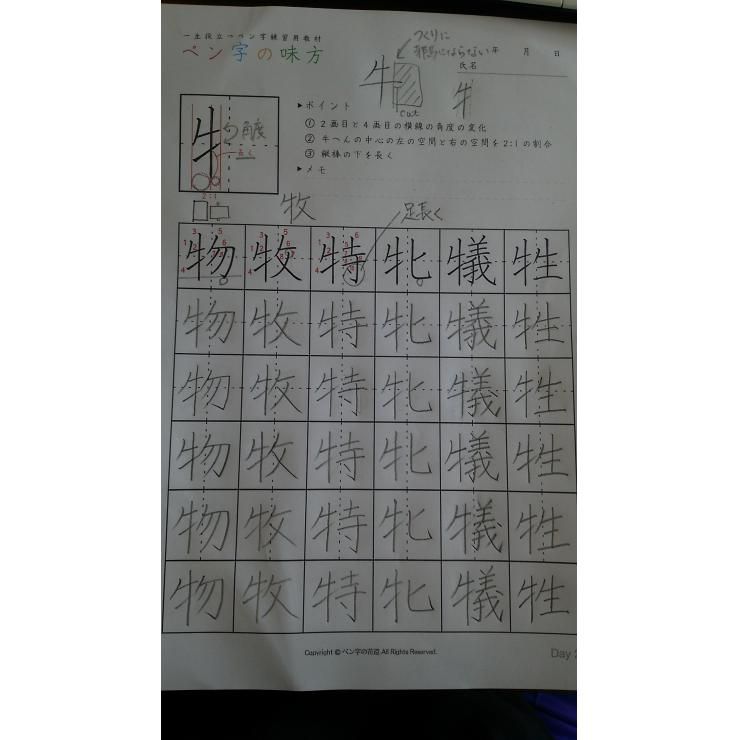 一生役立つペン字練習用教材
ペン字の味方
つくりに
邪魔にならない
年 月 日
氏名
牛
cut
牛
角度
長く
2:1
▶ポイント
① 2画目と4画目の横線の角度の変化
② 牛へんの中心の左の空間と右の空間を2:1の割合
③ 縦棒の下を長く
▶メモ
牧
足長く
物 牧 特 牝 犠 牲
物 牧 特 牝 犠 牲
物 牧 特 牝 犠 牲
物 牧 特 牝 犠 牲
物 牧 特 牝 犠 牲
物 牧 特 牝 犠 牲
Copyright © ペン字の花道 All Rights Reserved.
Day